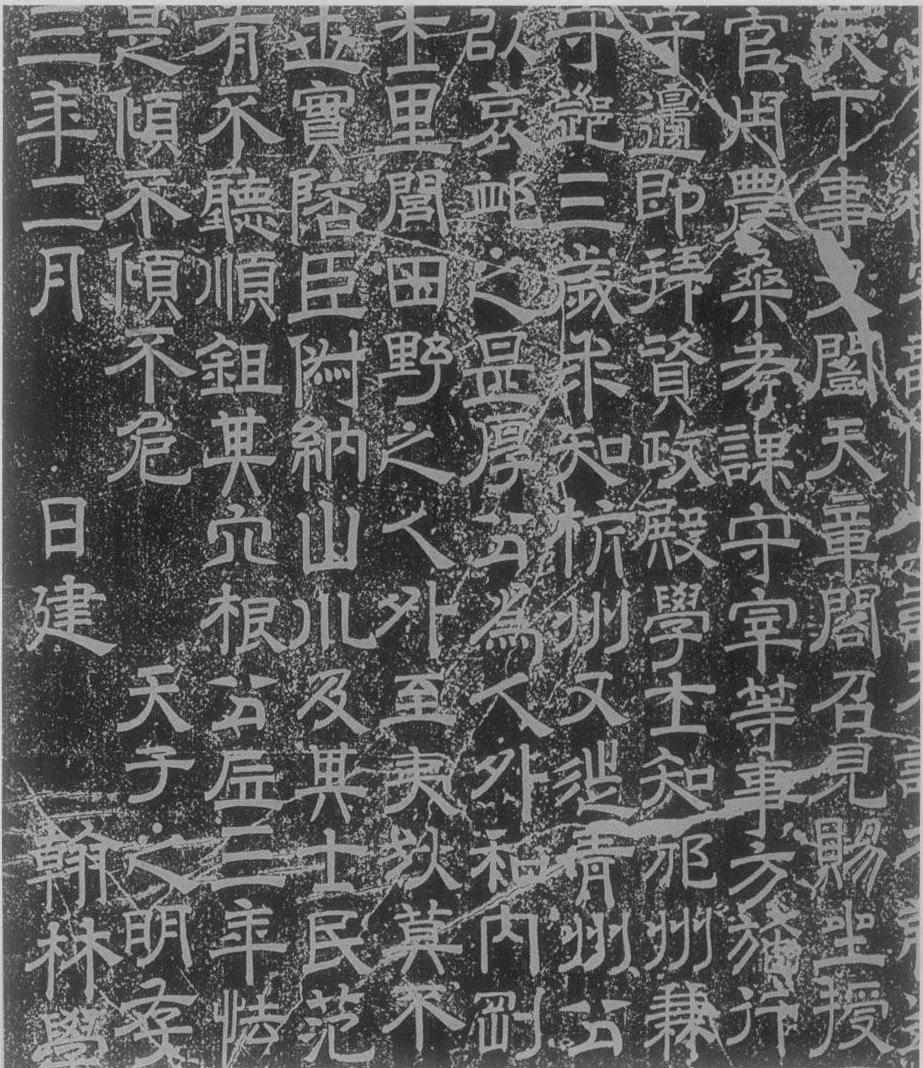 天下事又闓天章閣召見賜坐授
官用農桑考課守宰等事方施行
守邊即拜資政殿學士知邠州兼
守鄧三歲求知杭州又徙青州公
以哀卹之甚厚公為人外和內剛
士里閭田野之人外至夷狄莫不
世實陪臣俶納山川及其士民范
有不聽順鉏其穴根公居三年怯
是傾不傾不危 天子之明存
三年二月 日建 翰林學